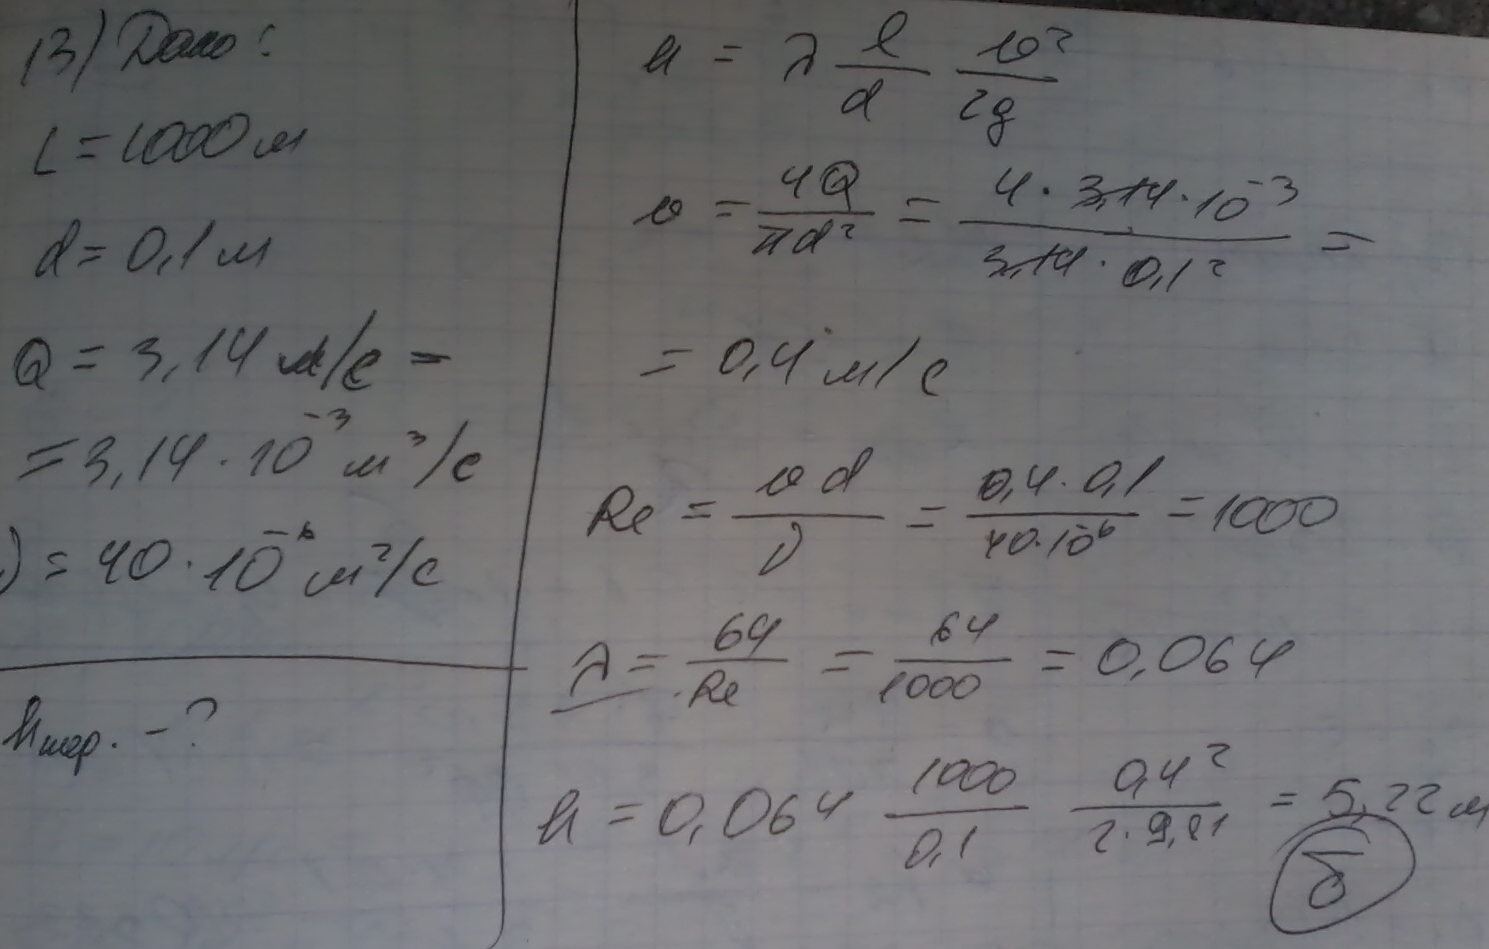 13) Дано:
L = 1000 м
d = 0,1 м
Q = 3,14 л/с =
= 3,14 · 10⁻³ м³/с
ν = 40 · 10⁻⁶ м²/с
hтр. - ?
h = λ l/d v²/2g
v = 4Q/πd² = 4 · 3,14 · 10⁻³ / 3,14 · 0,1² =
= 0,4 м/с
Re = v d/ν = 0,4 · 0,1 / 40 · 10⁻⁶ = 1000
λ = 64/Re = 64/1000 = 0,064
h = 0,064 1000/0,1 0,4²/2 · 9,81 = 5,22 м
б